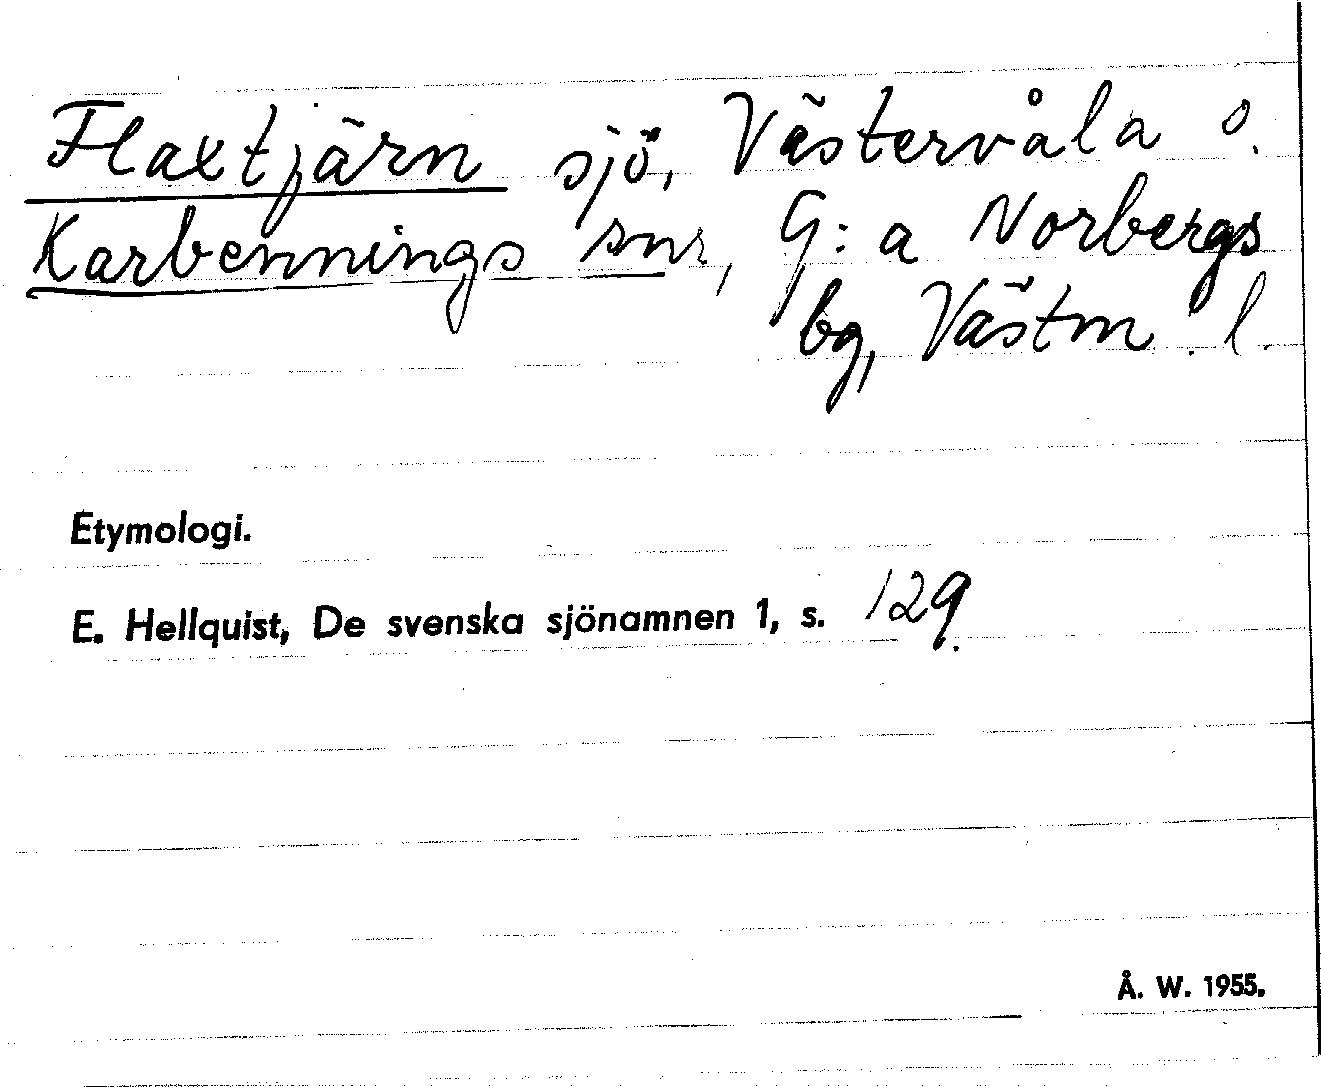 Flaxtjärn sjö, Västervåla o.
Karbennings snr, G:a Norbergs
bg, Västm. l.
Etymologi.
E. Hellquist, De svenska sjönamnen 1, s. 129.
Å. W. 1955.